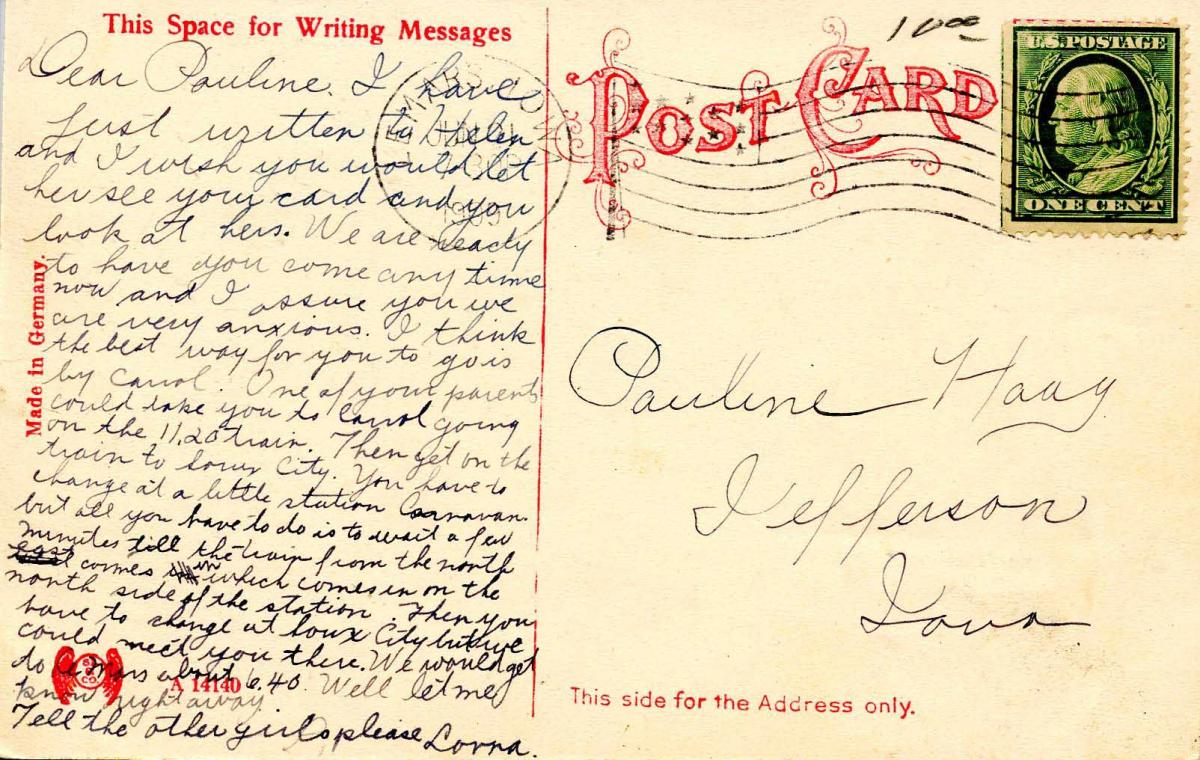 This Space for Writing Messages
Dear Pauline. I have
just written to Helen
and I wish you would let
her see your card and you
look at hers. We are ready
to have you come any time
now and I assure you we
are very anxious. I think
the best way for you to go is
by Carrol. One of your parents
could take you to Carrol going
on the 11.20 train. Then get on the
train to Soux City. You have to
change at a little station
but all you have to do is to wait a few
minutes till the train from the north
east comes in which comes in on the
north side of the station. Then you
have to change at Soux City but we
could meet you there. We would get
to Le Mars about 6.40. Well let me
know right away
Tell the other girls please Lorna.
Made in Germany.
A 14140
POST CARD
10 00
U.S. POSTAGE
ONE CENT
LE MARS IOWA
1909
Pauline Haag
Jefferson
Iowa
This side for the Address only.